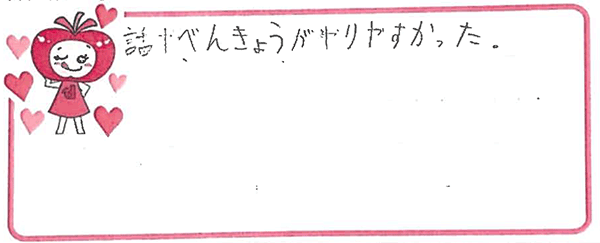 話やべんきょうがやりやすかった。